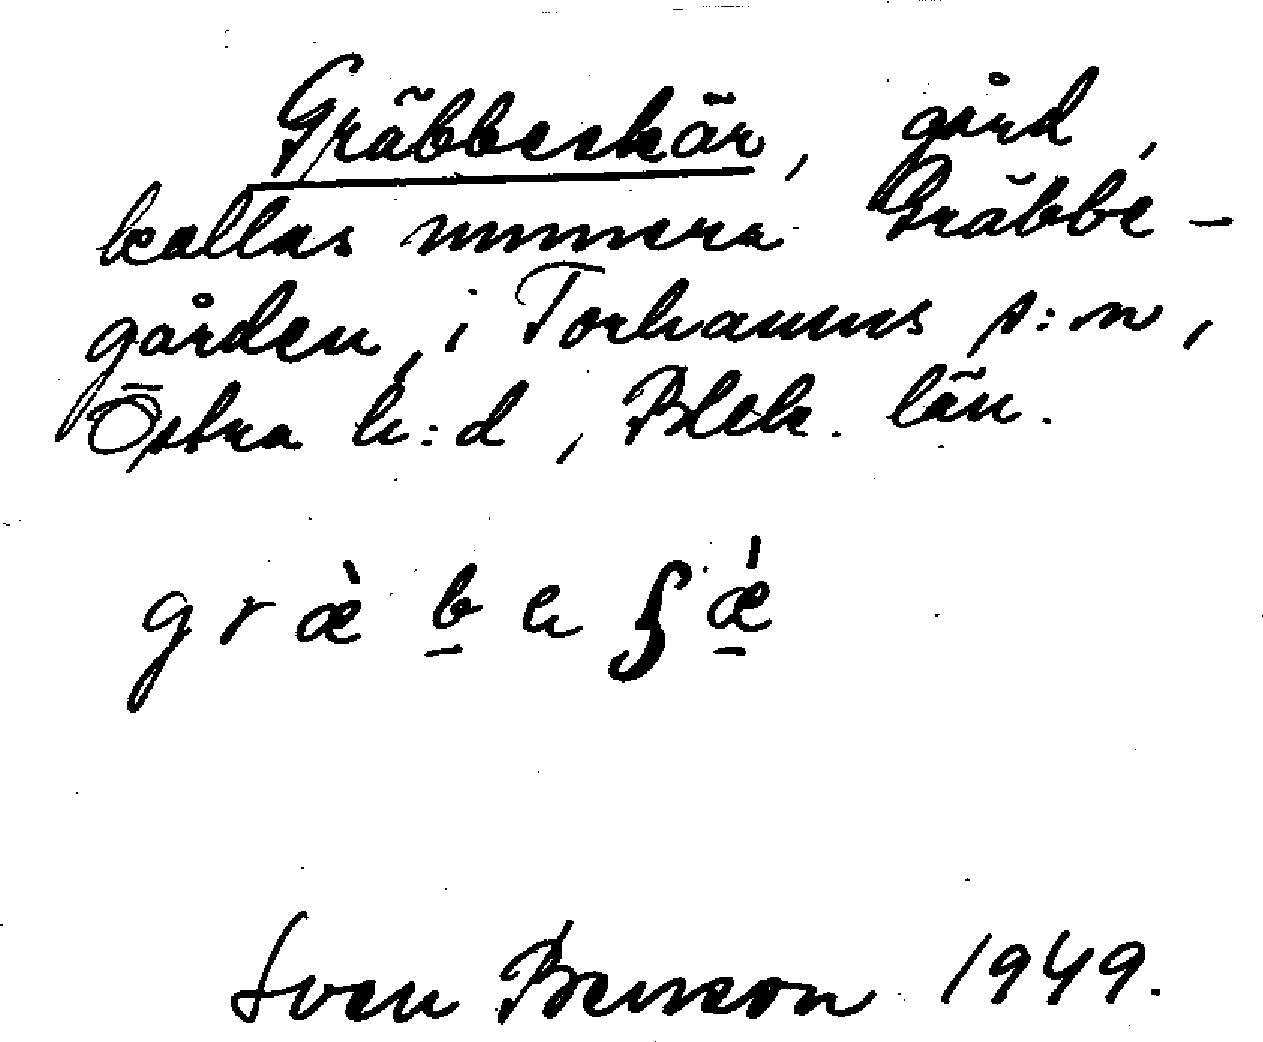 Gräbbeskär, gård,
kallas numera Gräbbe-
gården, i Torhamns s:n,
Östra h:d, Blek. län.
græ̀ b̲e ʃǽ̲
Sven Benson 1949.